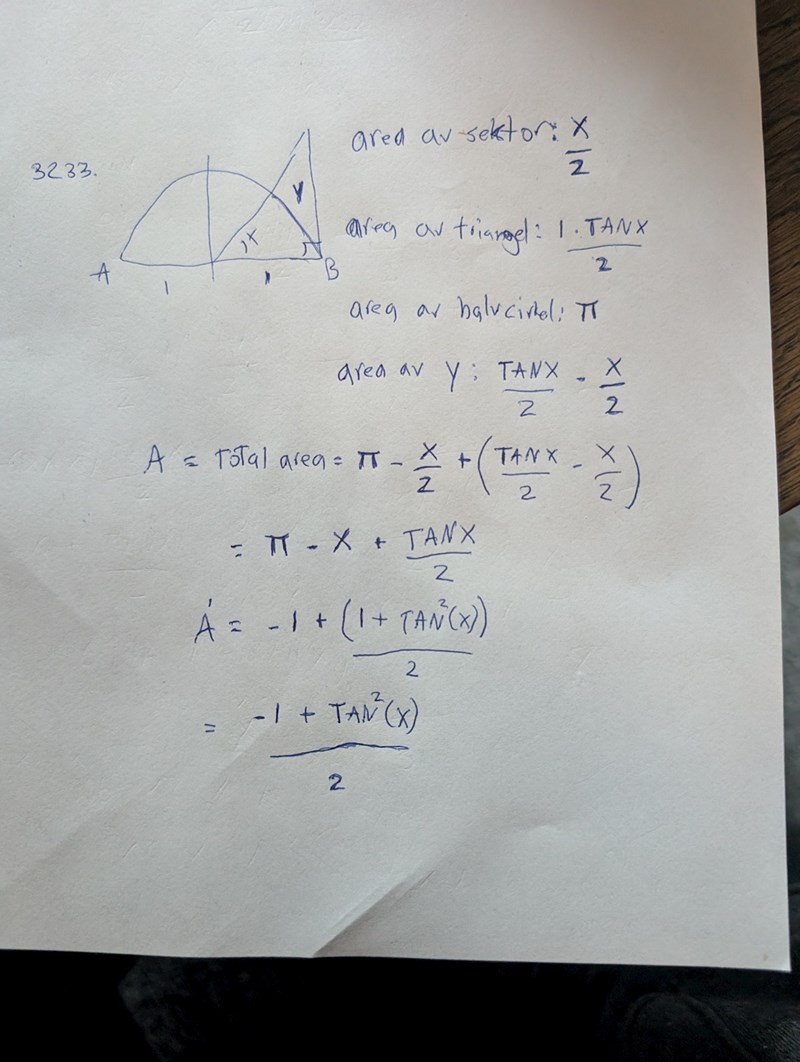 3233.
area av sektor: x/2
y
x
A
1
1
B
area av triangel: 1 · TANX/2
area av halvcirkel: π
area av y: TANX/2 - x/2
A = Total area = π - x/2 + (TANX/2 - x/2)
= π - x + TANX/2
A' = -1 + (1 + TAN²(x))/2
= -1 + TAN²(x)/2